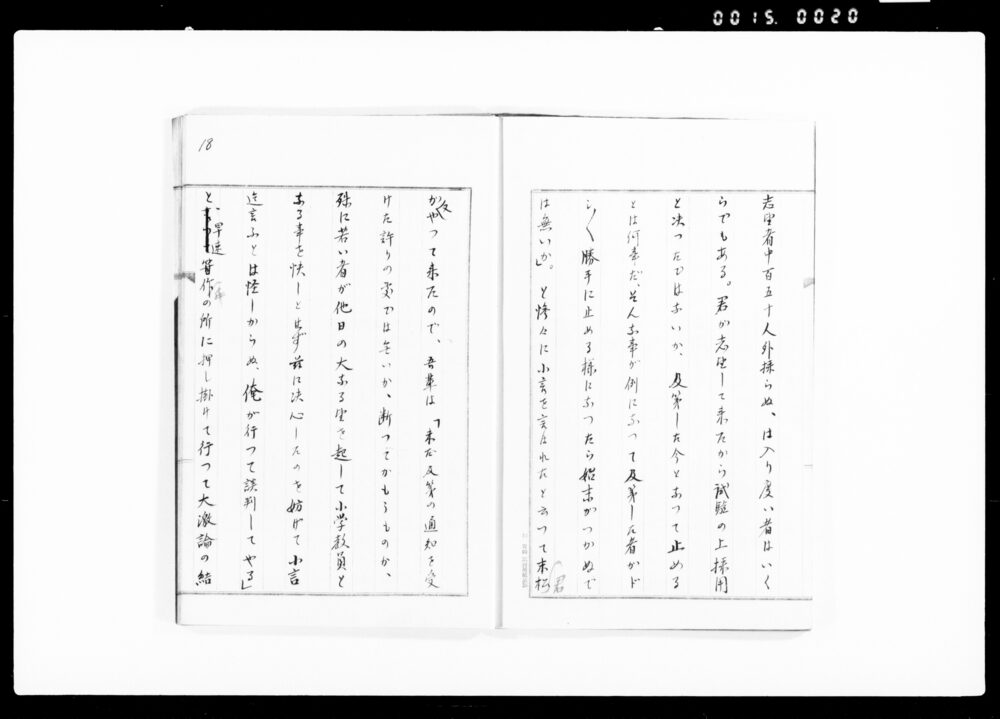 0015. 0020
志望者中百五十人外採らぬ、は入り度い者はいく
らでもある。君が志望して来たから試験の上採用
と决つたではないか、及第した今となつて止める
とは何事だ、そんな事が例になつて及第した者がド
シ〱勝手に止める様になつたら始末がつかぬで
は無いか」。と惨々に小言を言はれたと云つて末松君
18
が反つて来たので、吾輩は「未だ及第の通知を受
けた許りの処では無いか、断つてかもうものか、
殊に若い者が他日の大なる望を起して小学教員と
なる事を快しとせず茲に决心したのを妨げて小言
迄言ふとは怪しからぬ、俺が行つて談判してやる」
と、早速箕作の所に押し掛けて行つて大激論の結